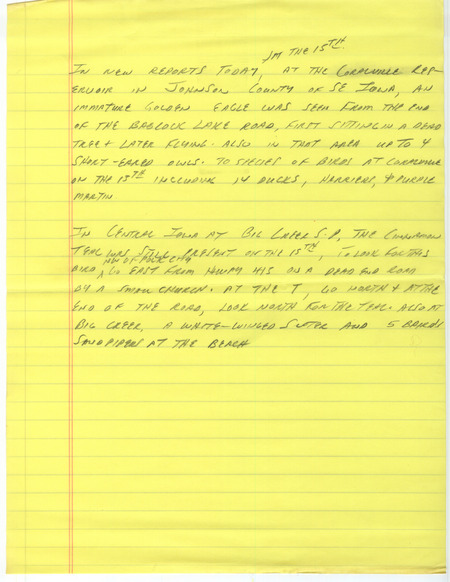 ON THE 15TH.
IN NEW REPORTS TODAY, AT THE CORALVILLE RES-
ERVOIR IN JOHNSON COUNTY OF SE IOWA, AN
IMMATURE GOLDEN EAGLE WAS SEEN FROM THE END
OF THE BABCOCK LAKE ROAD, FIRST SITTING IN A DEAD
TREE + LATER FLYING. ALSO IN THAT AREA UP TO 4
SHORT-EARED OWLS. 70 SPECIES OF BIRDS AT CORALVILLE
ON THE 15TH INCLUDING 14 DUCKS, HARRIERS, + PURPLE
MARTIN
IN CENTRAL IOWA AT BIG CREEK S.P, THE CINNAMON
TEAL WAS STILL PRESENT ON THE 15TH, TO LOOK FOR THIS
NW OF POLK CITY
BIRD, GO EAST FROM HIWAY 415 ON A DEAD END ROAD
BY A SMALL CHURCH. AT THE T, GO NORTH + AT THE
END OF THE ROAD, LOOK NORTH FOR THE TEAL. ALSO AT
BIG CREEK, A WHITE-WINGED SCOTER AND 5 BAIRD'S
SANDPIPERS AT THE BEACH